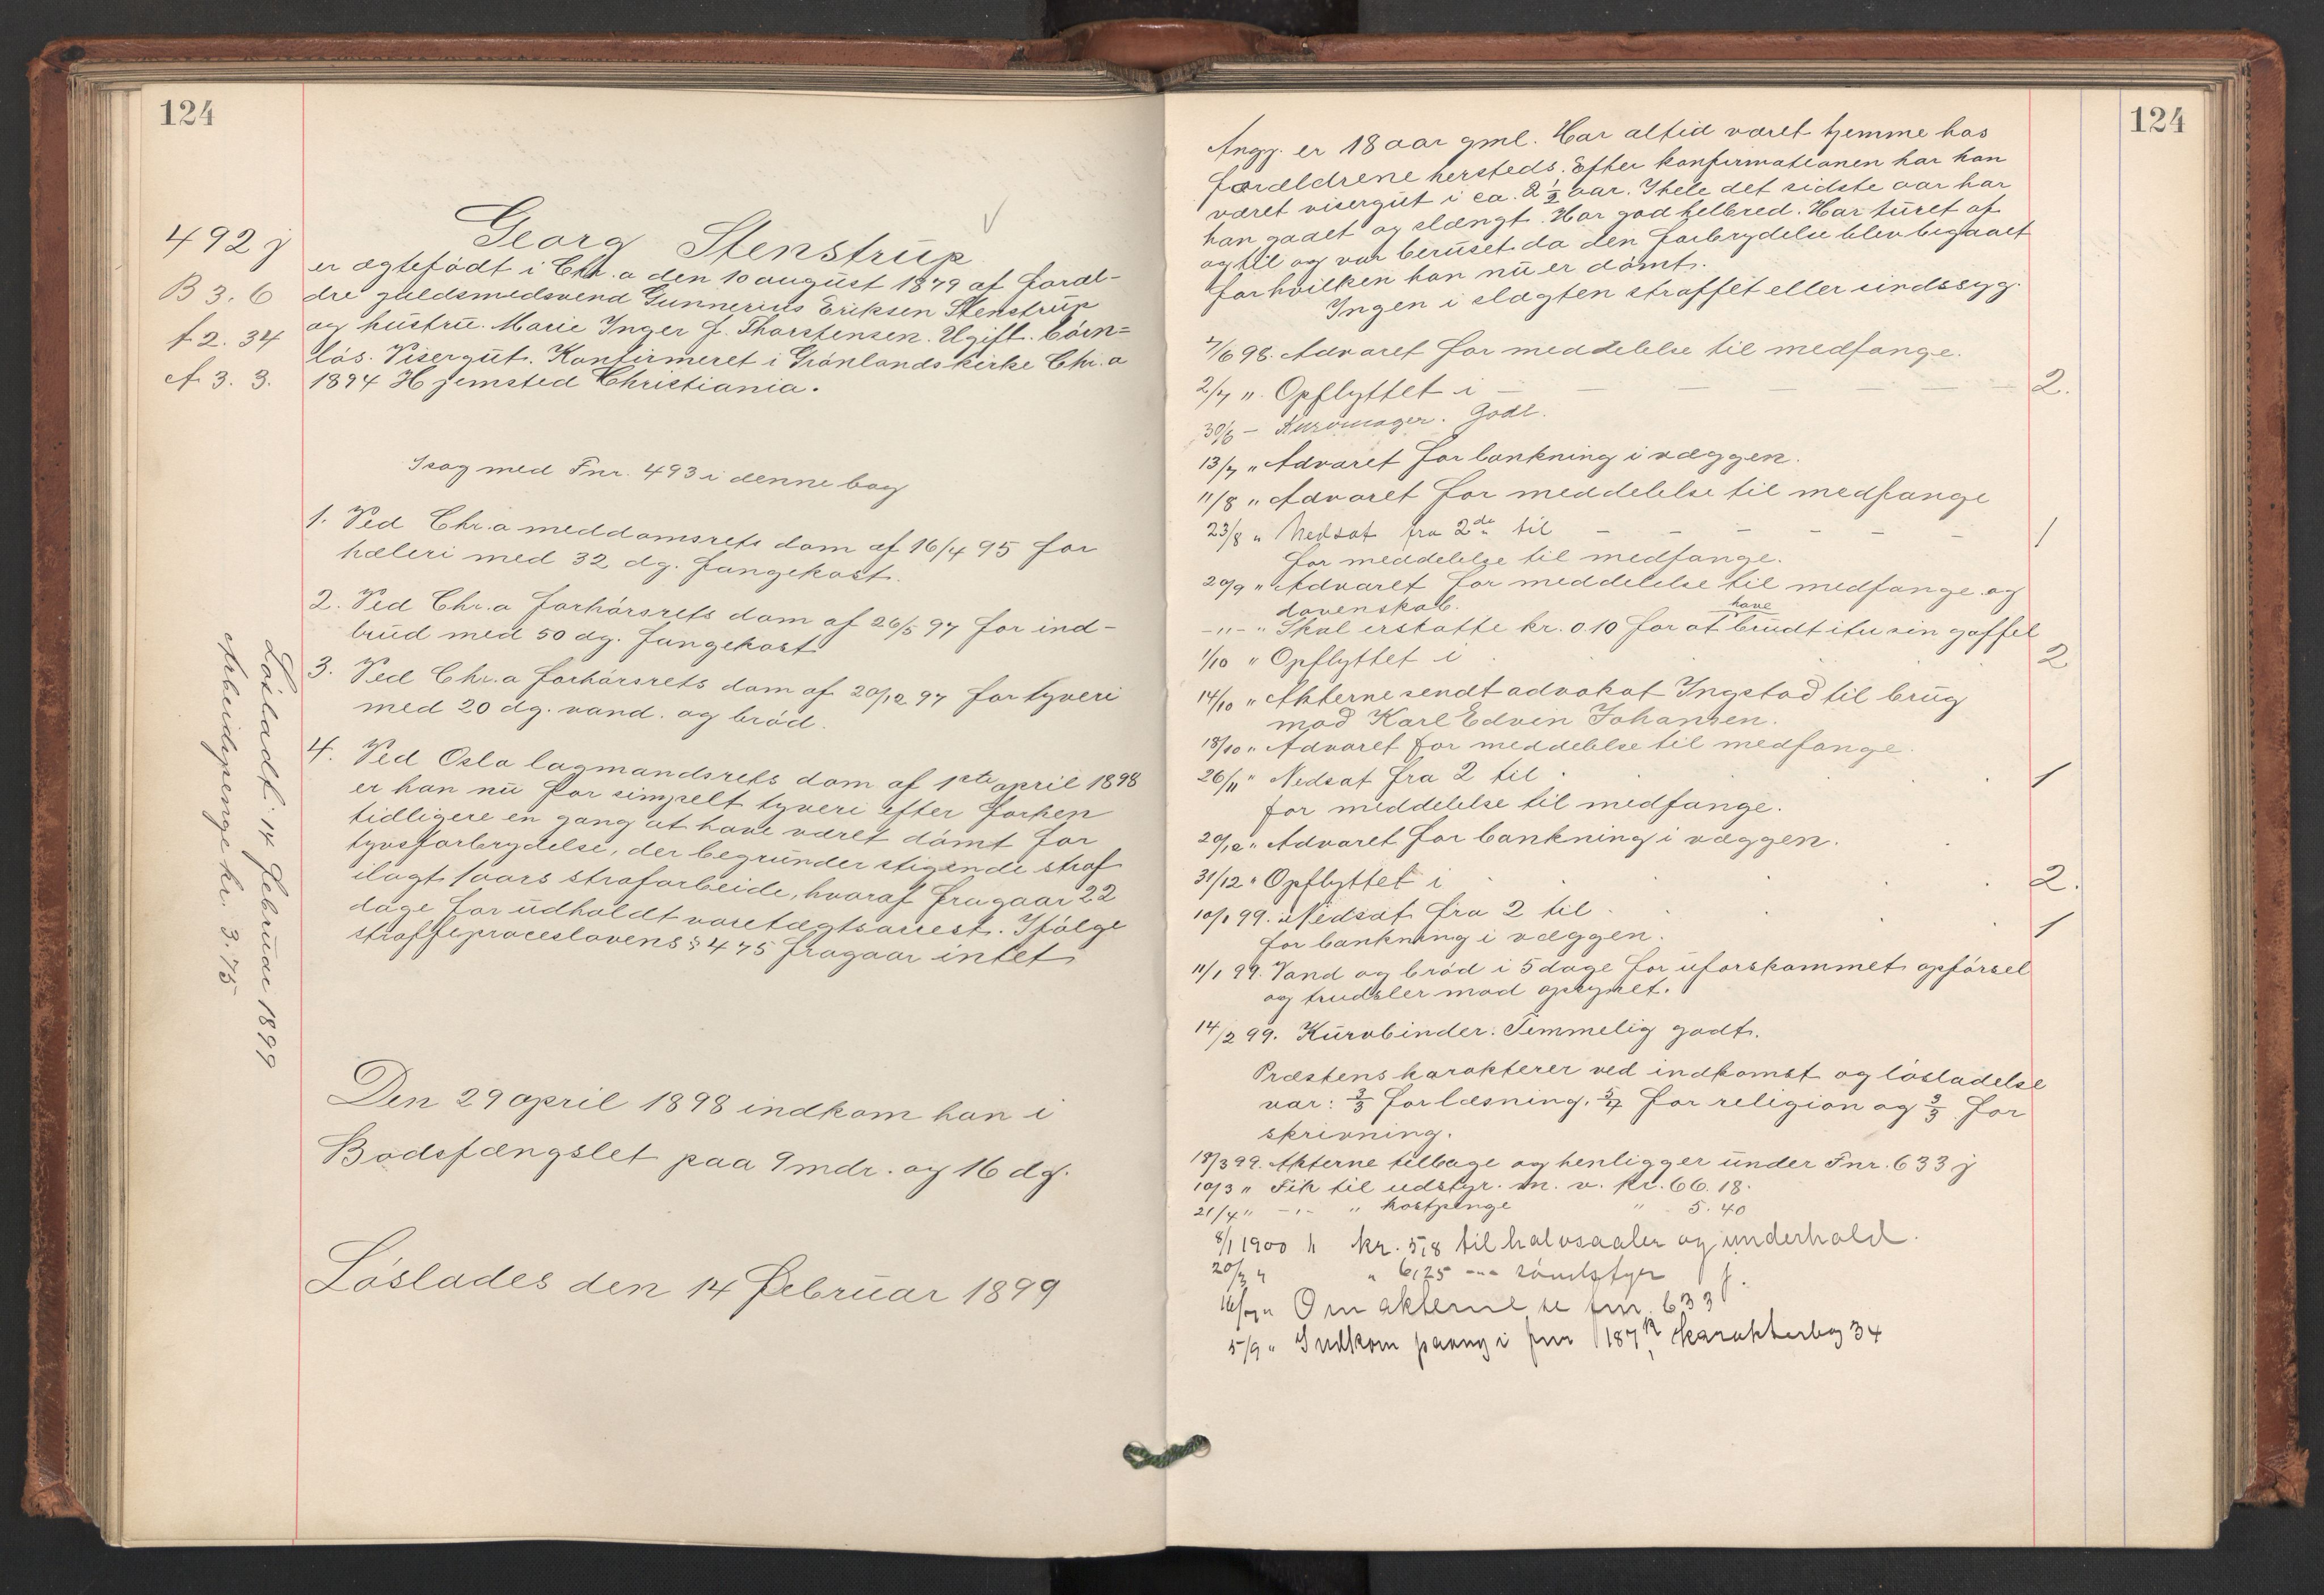 124
492 j
B 3. 6
f 2. 34
A 3. 3.
Georg Stenstrup
er ægtefödt i Chr.a den 10 august 1879 af foræl-
dre guldsmedsvend Gunnerius Eriksen Stenstrup
og hustru. Marie Inger f. Thorstensen. Ugift. börn=
lös. Visergut. Konfirmeret i Grönlands kirke Chr.a
1894 Hjemsted Christiania.
I sag med Fnr. 493 i denne bog
1. Ved Chr.a meddomsrets dom af 16/4 95 for
hæleri med 32 dg. fangekost.
2. Ved Chr.a forhörsrets dom af 26/5 97 for ind-
brud med 50 dg. fangekost
3. Ved Chr.a forhörsrets dom af 20/12 97 for tyveri
med 20 dg. vand. og bröd.
4. Ved Oslo lagmandsrets dom af 1ste april 1898
er han nu for simpelt tyveri efter forhen
tidligere en gang at have været dömt for
tyvsforbrydelse, der begrunder stigende straf
ilagt 1 aars strafarbeide, hvoraf fragaar 22
dage for udholdt varetægtsarrest. Ifölge
straffeproceslovens § 475 fragaar intet
Den 29 april 1898 indkom han i
Bodsfængslet paa 9 mdr. og 16 dg.
Löslades den 14 februar 1899
Lösladt: 14 februar 1899
Arbeidspenge kr. 3.75
124
Angj. er 18 aar gml. Har altid været hjemme hos
forældrene hersteds. Efter konfirmationen har han
været visergut i ca. 2 1/2 aar. I hele det sidste aar har
han gaaet og slængt. Har god helbred. Har turet af
og til og var beruset da den forbrydelse blev begaaet
for hvilken han nu er dömt.
Ingen i slægten straffet eller sindssyg.
7/6 98. Advaret for meddelelse til medfange.
2/7 " Opflyttet i - - - - - 2.
30/6 - Kurvmager. Godt.
13/7 " Advaret for bankning i væggen.
11/8 " Advaret for meddelelse til medfange
23/8 " Nedsat fra 2de til - - - - - 1
for meddelelse til medfange.
20/9 " Advaret for meddelelse til medfange og
dovenskab.
-"- " Skal erstatte kr. 0.10 for at have brudt itu sin gaffel
1/10 " Opflyttet i 2
14/10 " Akterne sendt advokat Ingstad til brug
mod Karl Edvin Johansen.
18/10 " Advaret for meddelelse til medfange.
26/11 " Nedsat fra 2 til 1
for meddelelse til medfange.
20/12 " Advaret for bankning i væggen.
31/12 " Opflyttet i 2.
10/1 99. Nedsat fra 2 til 1
for bankning i væggen.
11/1 99. Vand og bröd i 5 dage for uforskammet opförsel
og trudsler mod opsynet.
14/2 99. Kurvbinder. Temmelig godt.
Præstens karakterer ved indkomst og lösladelse
var: 3/3 for læsning, 5/4 for religion og 3/3 for
skrivning.
18/3 99. Akterne tilbage og henligger under Fnr. 633 j
10/3 " Fik til udstyr. m. v. kr. 66.18.
21/4 " -"- " kostpenge " 5.40
8/1 1900 " kr. 5,8 til halvsaaler og underhold.
20/3 " " 6,25 -"-
16/7 " Om akterne se fnr. 633 j.
5/9 " Indkom paany i fnr 187 k karakterbog 34
124